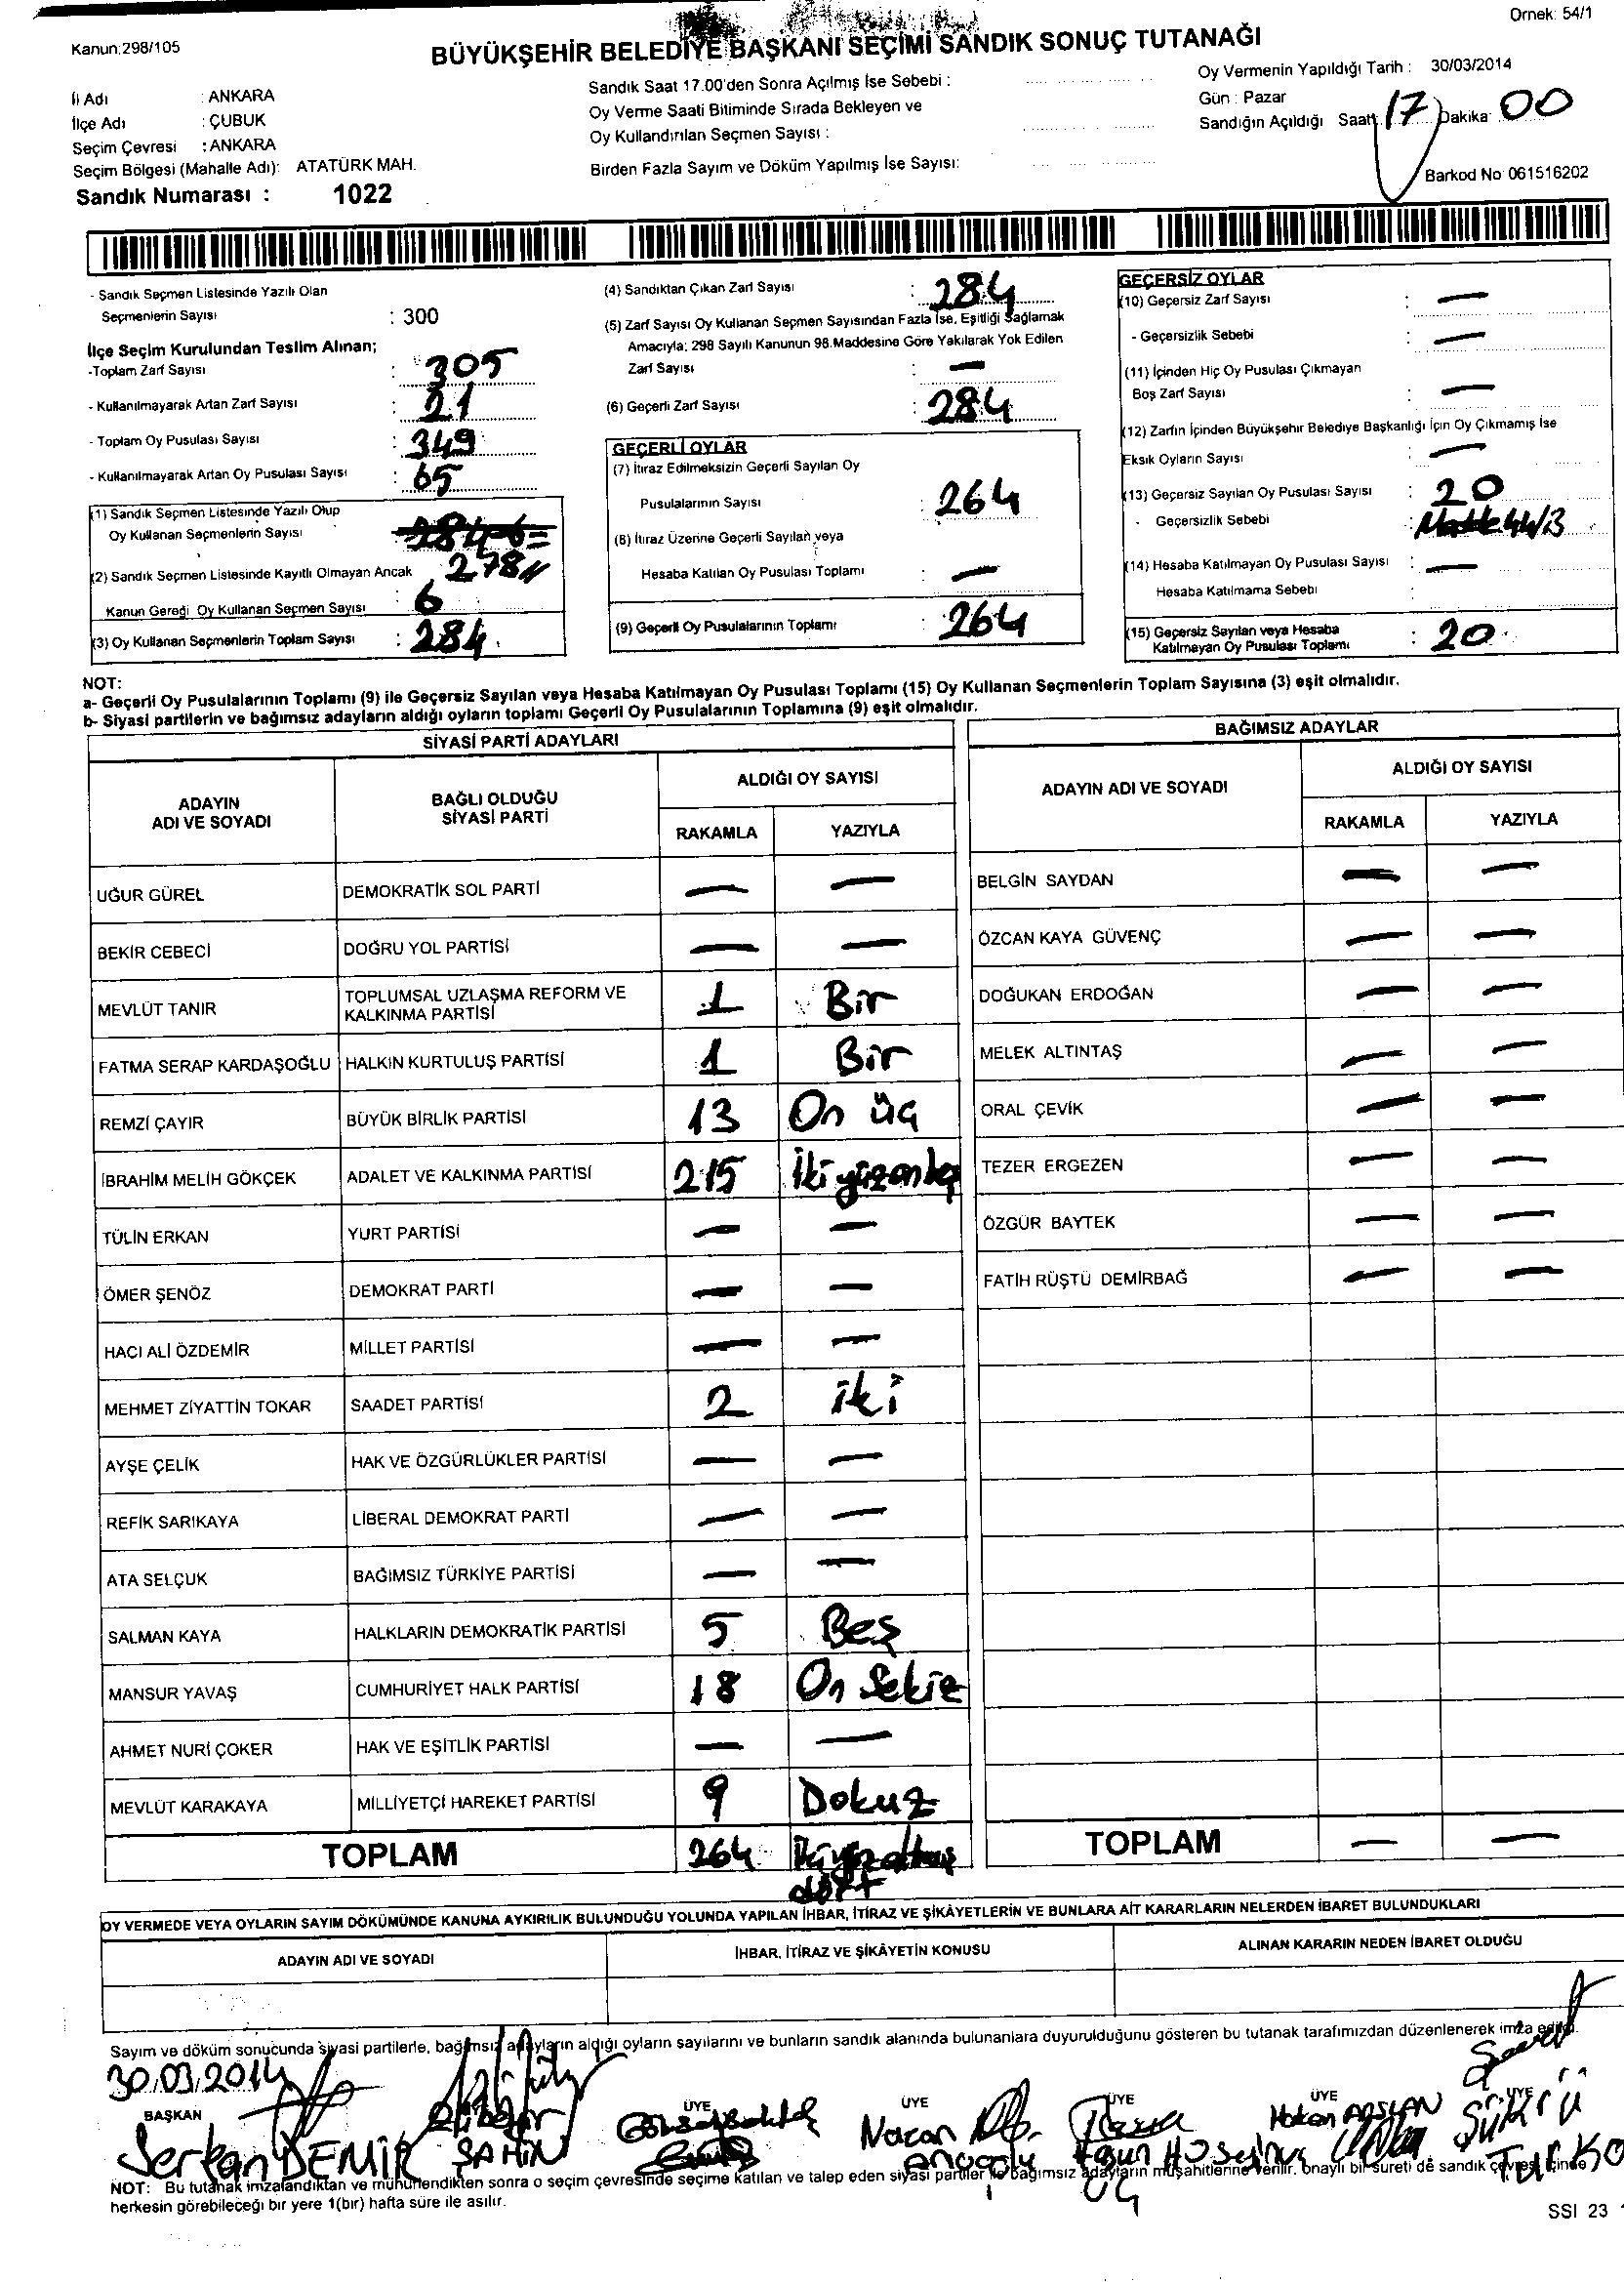 Örnek: 54/1
Kanun:298/105
BÜYÜKŞEHİR BELEDİYE BAŞKANI SEÇİMİ SANDIK SONUÇ TUTANAĞI
İl Adı : ANKARA
İlçe Adı : ÇUBUK
Seçim Çevresi : ANKARA
Seçim Bölgesi (Mahalle Adı): ATATÜRK MAH.
Sandık Numarası : 1022
Sandık Saat 17.00'den Sonra Açılmış İse Sebebi :
Oy Verme Saati Bitiminde Sırada Bekleyen ve
Oy Kullandırılan Seçmen Sayısı :
Birden Fazla Sayım ve Döküm Yapılmış İse Sayısı:
Oy Vermenin Yapıldığı Tarih : 30/03/2014
Gün : Pazar
Sandığın Açıldığı Saat: 17 Dakika: 00
Barkod No 061516202
- Sandık Seçmen Listesinde Yazılı Olan
Seçmenlerin Sayısı : 300
İlçe Seçim Kurulundan Teslim Alınan;
-Toplam Zarf Sayısı : 305
- Kullanılmayarak Artan Zarf Sayısı : 21
- Toplam Oy Pusulası Sayısı : 349
- Kullanılmayarak Artan Oy Pusulası Sayısı : 65
(1) Sandık Seçmen Listesinde Yazılı Olup
Oy Kullanan Seçmenlerin Sayısı
278
(2) Sandık Seçmen Listesinde Kayıtlı Olmayan Ancak
Kanun Gereği Oy Kullanan Seçmen Sayısı : 6
(3) Oy Kullanan Seçmenlerin Toplam Sayısı : 284
(4) Sandıktan Çıkan Zarf Sayısı : 284
(5) Zarf Sayısı Oy Kullanan Seçmen Sayısından Fazla İse, Eşitliği Sağlamak
Amacıyla; 298 Sayılı Kanunun 98.Maddesine Göre Yakılarak Yok Edilen
Zarf Sayısı : —
(6) Geçerli Zarf Sayısı : 284
GEÇERLİ OYLAR
(7) İtiraz Edilmeksizin Geçerli Sayılan Oy
Pusulalarının Sayısı : 264
(8) İtiraz Üzerine Geçerli Sayılan veya
Hesaba Katılan Oy Pusulası Toplamı : —
(9) Geçerli Oy Pusulalarının Toplamı : 264
GEÇERSİZ OYLAR
(10) Geçersiz Zarf Sayısı : —
- Geçersizlik Sebebi : —
(11) İçinden Hiç Oy Pusulası Çıkmayan
Boş Zarf Sayısı : —
(12) Zarfın İçinden Büyükşehir Belediye Başkanlığı İçin Oy Çıkmamış İse
Eksik Oyların Sayısı : —
(13) Geçersiz Sayılan Oy Pusulası Sayısı : 20
- Geçersizlik Sebebi : Madde 44/B
(14) Hesaba Katılmayan Oy Pusulası Sayısı : —
Hesaba Katılmama Sebebi :
(15) Geçersiz Sayılan veya Hesaba
Katılmayan Oy Pusulası Toplamı : 20
NOT:
a- Geçerli Oy Pusulalarının Toplamı (9) ile Geçersiz Sayılan veya Hesaba Katılmayan Oy Pusulası Toplamı (15) Oy Kullanan Seçmenlerin Toplam Sayısına (3) eşit olmalıdır.
b- Siyasi partilerin ve bağımsız adayların aldığı oyların toplamı Geçerli Oy Pusulalarının Toplamına (9) eşit olmalıdır.
SİYASİ PARTİ ADAYLARI
ADAYIN ADI VE SOYADI
BAĞLI OLDUĞU SİYASİ PARTİ
ALDIĞI OY SAYISI
RAKAMLA YAZIYLA
UĞUR GÜREL DEMOKRATİK SOL PARTİ — —
BEKİR CEBECİ DOĞRU YOL PARTİSİ — —
MEVLÜT TANIR TOPLUMSAL UZLAŞMA REFORM VE KALKINMA PARTİSİ 1 Bir
FATMA SERAP KARDAŞOĞLU HALKIN KURTULUŞ PARTİSİ 1 Bir
REMZİ ÇAYIR BÜYÜK BİRLİK PARTİSİ 13 On üç
İBRAHİM MELİH GÖKÇEK ADALET VE KALKINMA PARTİSİ 215 İki yüzonbeş
TÜLİN ERKAN YURT PARTİSİ — —
ÖMER ŞENÖZ DEMOKRAT PARTİ — —
HACI ALİ ÖZDEMİR MİLLET PARTİSİ — —
MEHMET ZİYATTİN TOKAR SAADET PARTİSİ 2 iki
AYŞE ÇELİK HAK VE ÖZGÜRLÜKLER PARTİSİ — —
REFİK SARIKAYA LİBERAL DEMOKRAT PARTİ — —
ATA SELÇUK BAĞIMSIZ TÜRKİYE PARTİSİ — —
SALMAN KAYA HALKLARIN DEMOKRATİK PARTİSİ 5 Beş
MANSUR YAVAŞ CUMHURİYET HALK PARTİSİ 18 On Sekiz
AHMET NURİ ÇOKER HAK VE EŞİTLİK PARTİSİ — —
MEVLÜT KARAKAYA MİLLİYETÇİ HAREKET PARTİSİ 9 Dokuz
TOPLAM 264 İkiyüzaltmış dört
BAĞIMSIZ ADAYLAR
ADAYIN ADI VE SOYADI
ALDIĞI OY SAYISI
RAKAMLA YAZIYLA
BELGİN SAYDAN — —
ÖZCAN KAYA GÜVENÇ — —
DOĞUKAN ERDOĞAN — —
MELEK ALTINTAŞ — —
ORAL ÇEVİK — —
TEZER ERGEZEN — —
ÖZGÜR BAYTEK — —
FATİH RÜŞTÜ DEMİRBAĞ — —
TOPLAM — —
OY VERMEDE VEYA OYLARIN SAYIM DÖKÜMÜNDE KANUNA AYKIRILIK BULUNDUĞU YOLUNDA YAPILAN İHBAR, İTİRAZ VE ŞİKÂYETLERİN VE BUNLARA AİT KARARLARIN NELERDEN İBARET BULUNDUKLARI
ADAYIN ADI VE SOYADI
İHBAR, İTİRAZ VE ŞİKÂYETİN KONUSU
ALINAN KARARIN NEDEN İBARET OLDUĞU
Sayım ve döküm sonucunda siyasi partilerle, bağımsız adayların aldığı oyların sayılarını ve bunların sandık alanında bulunanlara duyurulduğunu gösteren bu tutanak tarafımızdan düzenlenerek imza edildi.
30.03.2014
BAŞKAN ÜYE ÜYE ÜYE ÜYE ÜYE
Serkan DEMİR
ŞAHİN
Hakan ARSLAN
Şükrü
NOT: Bu tutanak imzalandıktan ve mühürlendikten sonra o seçim çevresinde seçime katılan ve talep eden siyasi partiler ile bağımsız adayların müşahitlerine verilir, onaylı bir sureti de sandık çevresi içinde
herkesin görebileceği bir yere 1(bir) hafta süre ile asılır.
SSI 23